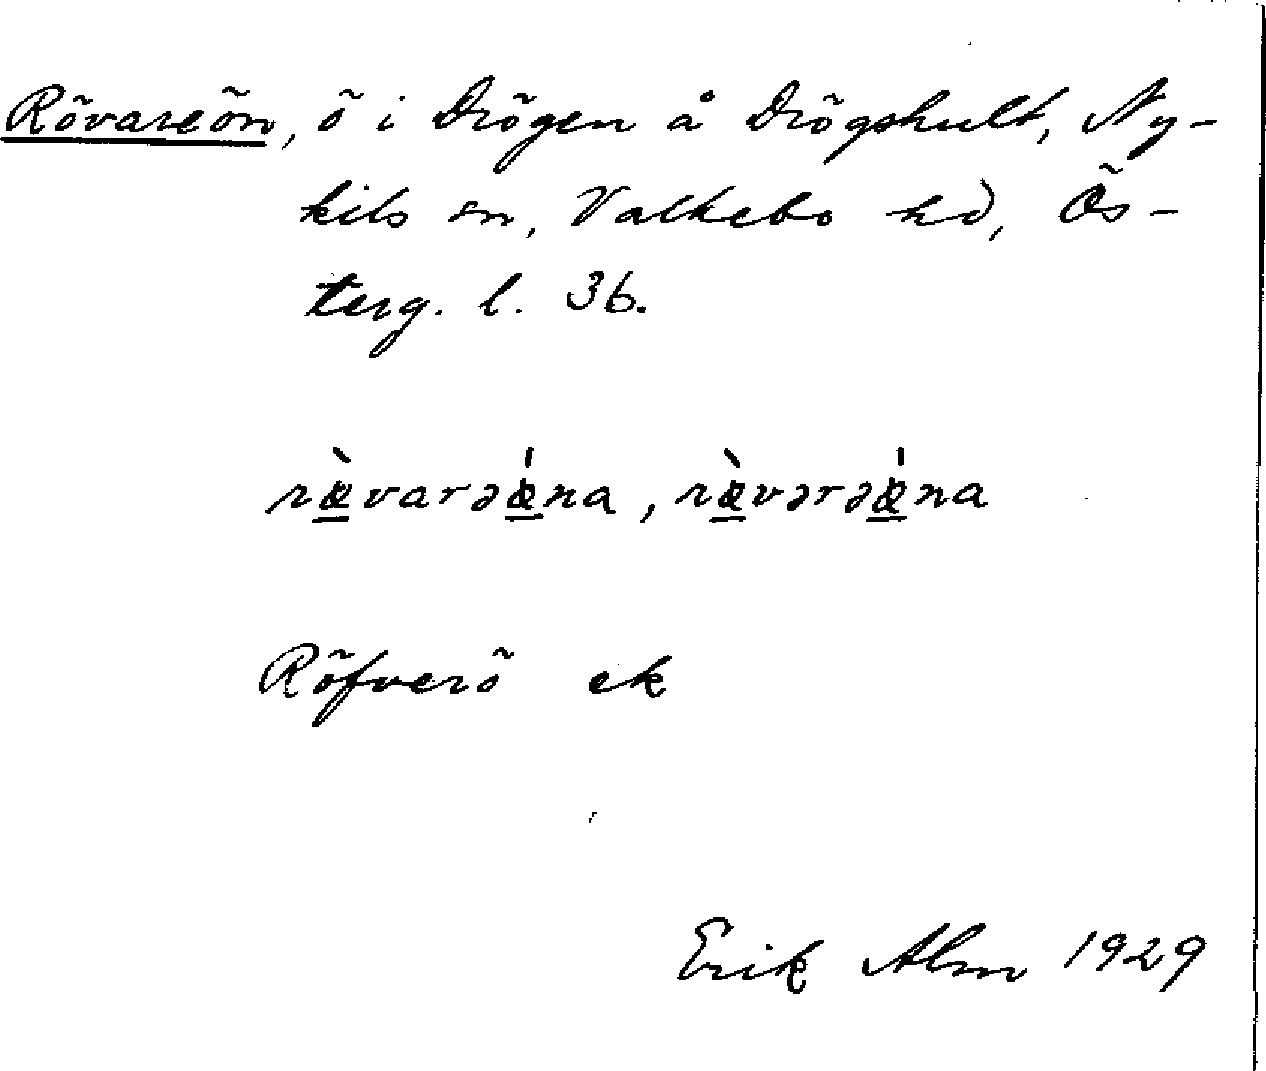 Rövareön, ö i Drögen å Drögshult, Ny-
kils sn, Valkebo hd, Ös-
terg. l. 36.
ræ̀varəǽna, ræ̀vərəǽna
Röfverö ek
Erik Alm 1929